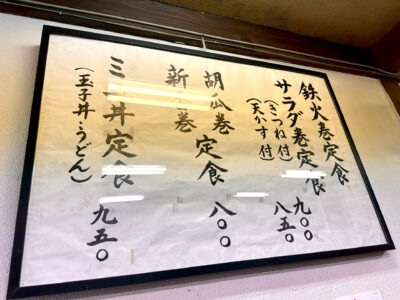 鉄火巻定食 九〇〇
サラダ巻定食 八五〇
(きつね付)
(天かす付)
胡瓜巻定食 八〇〇
新巻
定食 九五〇
(玉子丼・うどん)